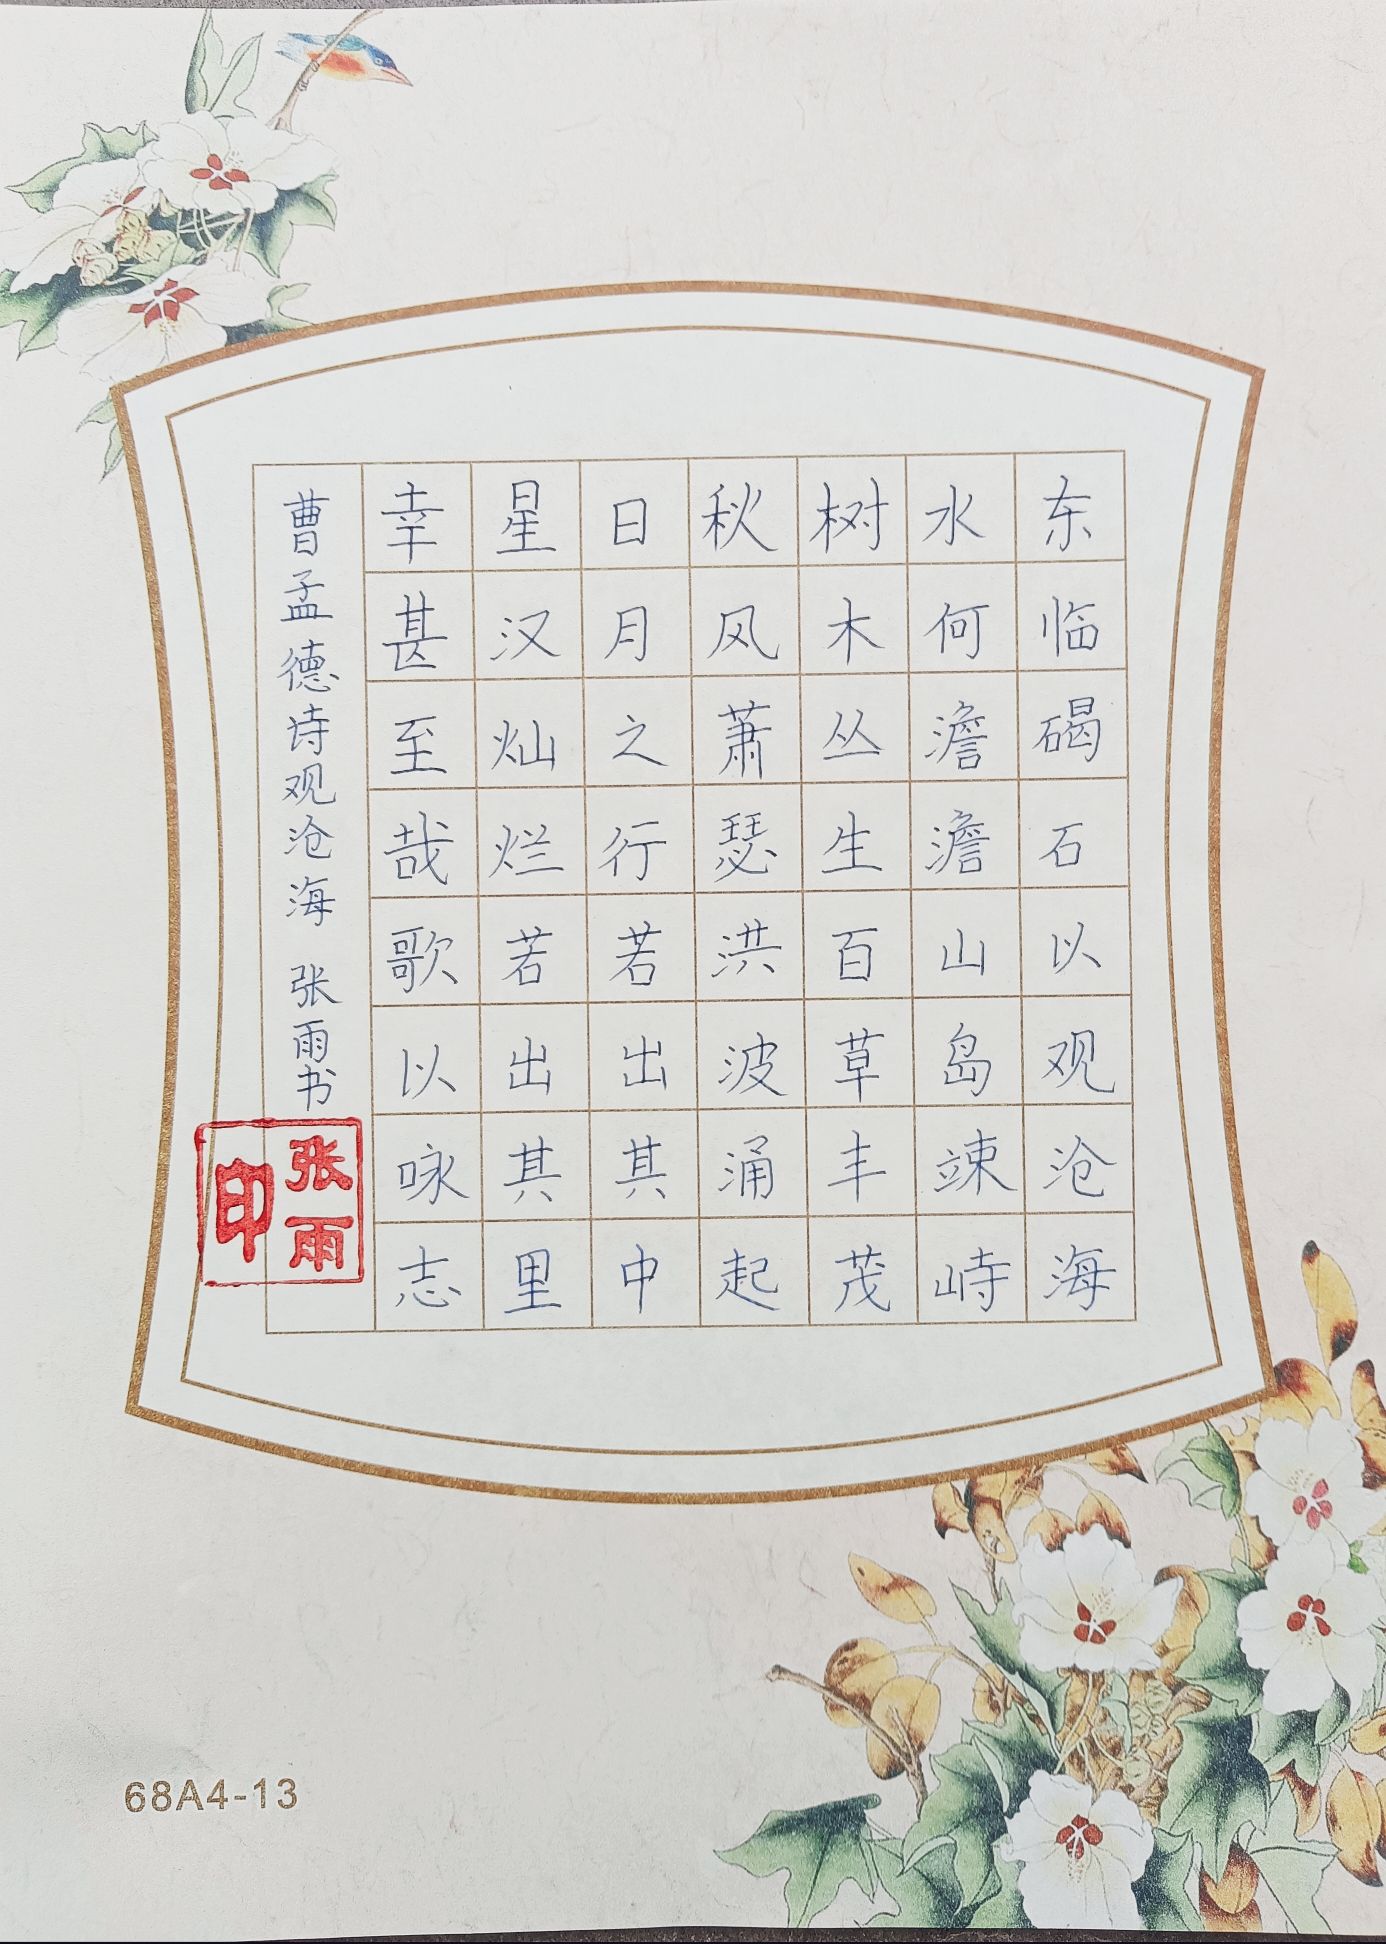 东临碣石以观沧海
水何澹澹山岛竦峙
树木丛生百草丰茂
秋风萧瑟洪波涌起
日月之行若出其中
星汉灿烂若出其里
幸甚至哉歌以咏志
曹孟德诗观沧海 张雨书
张雨印
68A4-13